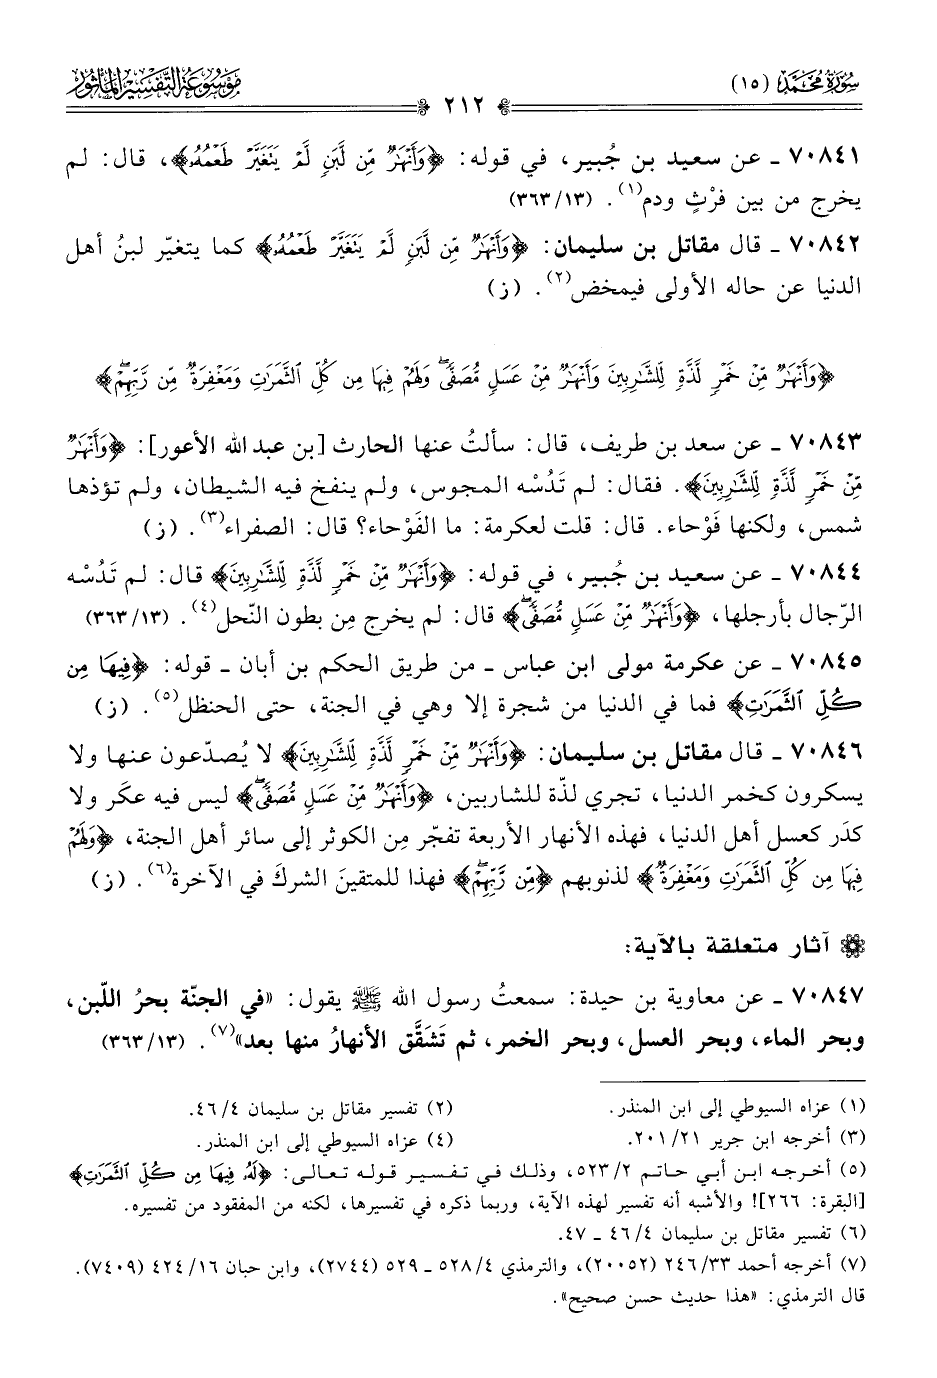 سُورَةُ مُحَمَّد (١٥)
٢١٢
مَوْسُوعَةُ التَّفْسِيرِ المَأْثُور
٧٠٨٤١ ـ عن سعيد بن جُبير، في قوله: ﴿وَأَنْهَٰرٌ مِّن لَّبَنٍ لَّمْ يَتَغَيَّرْ طَعْمُهُۥ﴾، قال: لم
يخرج من بين فرْثٍ ودم(١). (٣٦٣/١٣)
٧٠٨٤٢ ـ قال مقاتل بن سليمان: ﴿وَأَنْهَٰرٌ مِّن لَّبَنٍ لَّمْ يَتَغَيَّرْ طَعْمُهُۥ﴾ كما يتغيّر لبنُ أهل
الدنيا عن حاله الأولى فيمخض(٢). (ز)
﴿وَأَنْهَٰرٌ مِّنْ خَمْرٍ لَّذَّةٍ لِّلشَّٰرِبِينَ وَأَنْهَٰرٌ مِّنْ عَسَلٍ مُّصَفًّى ۖ وَلَهُمْ فِيهَا مِن كُلِّ ٱلثَّمَرَٰتِ وَمَغْفِرَةٌ مِّن رَّبِّهِمْ ۖ﴾
٧٠٨٤٣ ـ عن سعد بن طريف، قال: سألتُ عنها الحارث [بن عبد الله الأعور]: ﴿وَأَنْهَٰرٌ
مِّنْ خَمْرٍ لَّذَّةٍ لِّلشَّٰرِبِينَ﴾. فقال: لم تَدُسْه المجوس، ولم ينفخ فيه الشيطان، ولم تؤذها
شمس، ولكنها فَوْحاء. قال: قلت لعكرمة: ما الفَوْحاء؟ قال: الصفراء(٣). (ز)
٧٠٨٤٤ ـ عن سعيد بن جُبير، في قوله: ﴿وَأَنْهَٰرٌ مِّنْ خَمْرٍ لَّذَّةٍ لِّلشَّٰرِبِينَ﴾ قال: لم تَدُسْه
الرّجال بأرجلها، ﴿وَأَنْهَٰرٌ مِّنْ عَسَلٍ مُّصَفًّى ۖ﴾ قال: لم يخرج مِن بطون النّحل(٤). (٣٦٣/١٣)
٧٠٨٤٥ ـ عن عكرمة مولى ابن عباس ـ من طريق الحكم بن أبان ـ قوله: ﴿فِيهَا مِن
كُلِّ ٱلثَّمَرَٰتِ﴾ فما في الدنيا من شجرة إلا وهي في الجنة، حتى الحنظل(٥). (ز)
٧٠٨٤٦ ـ قال مقاتل بن سليمان: ﴿وَأَنْهَٰرٌ مِّنْ خَمْرٍ لَّذَّةٍ لِّلشَّٰرِبِينَ﴾ لا يُصدّعون عنها ولا
يسكرون كخمر الدنيا، تجري لذّة للشاربين، ﴿وَأَنْهَٰرٌ مِّنْ عَسَلٍ مُّصَفًّى ۖ﴾ ليس فيه عكَر ولا
كدَر كعسل أهل الدنيا، فهذه الأنهار الأربعة تفجّر مِن الكوثر إلى سائر أهل الجنة، ﴿وَلَهُمْ
فِيهَا مِن كُلِّ ٱلثَّمَرَٰتِ وَمَغْفِرَةٌ﴾ لذنوبهم ﴿مِّن رَّبِّهِمْ ۖ﴾ فهذا للمتقينَ الشركَ في الآخرة(٦). (ز)
آثار متعلقة بالآية:
٧٠٨٤٧ ـ عن معاوية بن حيدة: سمعتُ رسول الله ﷺ يقول: «في الجنّة بحرُ اللّبن،
وبحر الماء، وبحر العسل، وبحر الخمر، ثم تَشَقَّق الأنهارُ منها بعد»(٧). (٣٦٣/١٣)
(١) عزاه السيوطي إلى ابن المنذر. (٢) تفسير مقاتل بن سليمان ٤٦/٤.
(٣) أخرجه ابن جرير ٢٠١/٢١. (٤) عزاه السيوطي إلى ابن المنذر.
(٥) أخرجه ابن أبي حاتم ٥٢٣/٢، وذلك في تفسير قوله تعالى: ﴿لَهُۥ فِيهَا مِن كُلِّ ٱلثَّمَرَٰتِ﴾
[البقرة: ٢٦٦]! والأشبه أنه تفسير لهذه الآية، وربما ذكره في تفسيرها، لكنه من المفقود من تفسيره.
(٦) تفسير مقاتل بن سليمان ٤٦/٤ ـ ٤٧.
(٧) أخرجه أحمد ٢٤٦/٣٣ (٢٠٠٥٢)، والترمذي ٥٢٨/٤ ـ ٥٢٩ (٢٧٤٤)، وابن حبان ٤٢٤/١٦ (٧٤٠٩).
قال الترمذي: «هذا حديث حسن صحيح».